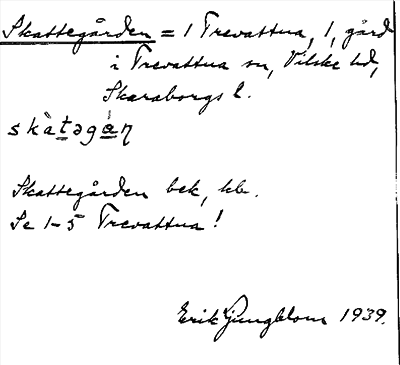 Skattegården = 1 Trevattna, 1, gård
i Trevattna sn, Vilske hd,
Skaraborgs l.
skàtəgán
Skattegården bek, kb.
Se 1-5 Trevattna!
Erik Ljungblom 1939.